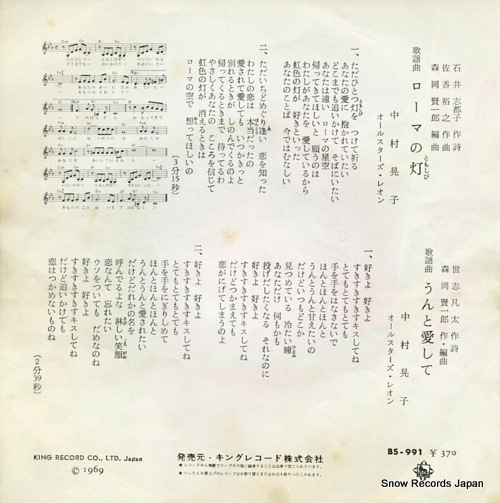 石井志都子 作詩
佐香裕之 作曲
森岡賢一郎 編曲
歌謡曲 ローマの灯
ともしび
中村晃子
オールスターズ・レオン
一、ただひとつ灯を つけて祈る
あなたの愛に 抱かれていたい
どこまでも追いかけて そばにいたい
あなたは遠い ローマの星空
帰ってきてほしいと 願うのは
わたしがあなたを 愛しているから
虹色の灯が 好きといった
あなたのことば 今ではむなしい
二、ただいちどめぐり逢い 恋を知った
わたしの恋は 本当だったの
愛されて愛しても いつかきっと
別れるときが しのんでくるのよ
帰ってくるときまで 待ってるわ
やさしくあなたの こころを信じて
虹色の灯が 消えるときは
ローマの空で 想ってほしいの
(3分15秒)
世志凡太 作詩
森岡賢一郎 作・編曲
歌謡曲 うんと愛して
中村晃子
オールスターズ・レオン
一、好きよ 好きよ
すきすきすきキスしてね
とてもとてもとても
手を手をはなさないで
ほんとほんとほんと
うんとうんと甘えたいの
だけどいつもどこか
見つめている 冷たい瞳
あなただけ 何もかも
投げだしたくなる それなのに
好きよ 好きよ
すきすきすきキスしてね
だけどつかまえても
恋がにげてしまうのよ
二、好きよ 好きよ
すきすきすきキスしてね
とてもとてもとても
手を手をにぎりしめて
ほんとほんとほんと
うんとうんと愛されたい
だけどだれかの名を
呼んでるよな 淋しい笑顔
恋なんて 忘れたい
ウソをついても だめなのね
好きよ 好きよ
すきすきすきキスしてね
だけど追いかけても
恋はつかめないものね
(2分39秒)
KING RECORD CO., LTD. Japan
© 1969
発売元・キングレコード株式会社
BS-991 ¥370
Snow Records Japan